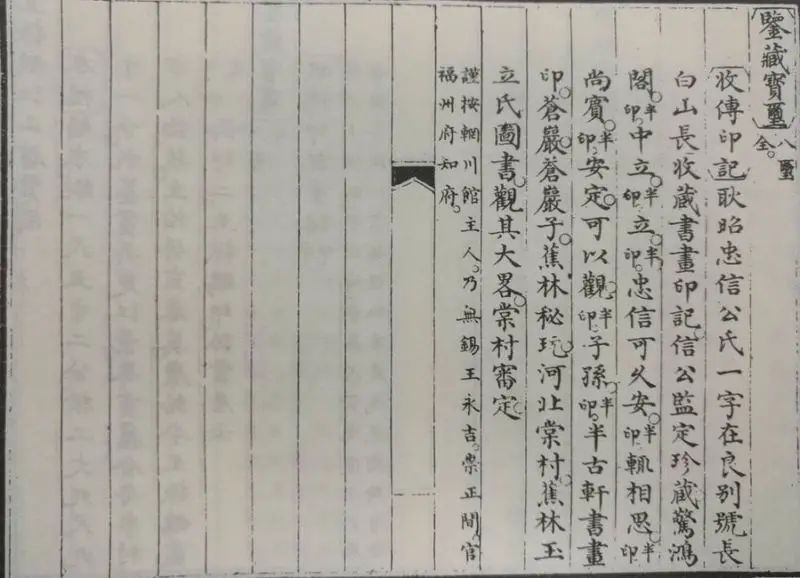 鑒藏寶璽八璽全。
收傳印記耿昭忠信公氏一字在良别號長
白山長收蔵書畫印記。信公監定珍蔵。驚鴻
閣。半印中立。半印立。半印忠信可久安。半印輒相思。半印
尚賓。半印安定。可以觀。半印子孫。半印半古軒書畫
印。蒼巖。蒼巖子。蕉林秘玩。河北棠村。蕉林玉
立氏圖書。觀其大畧。棠村審定。
謹按輞川館主人。乃無錫王永吉。崇正間。官
福州府知府。